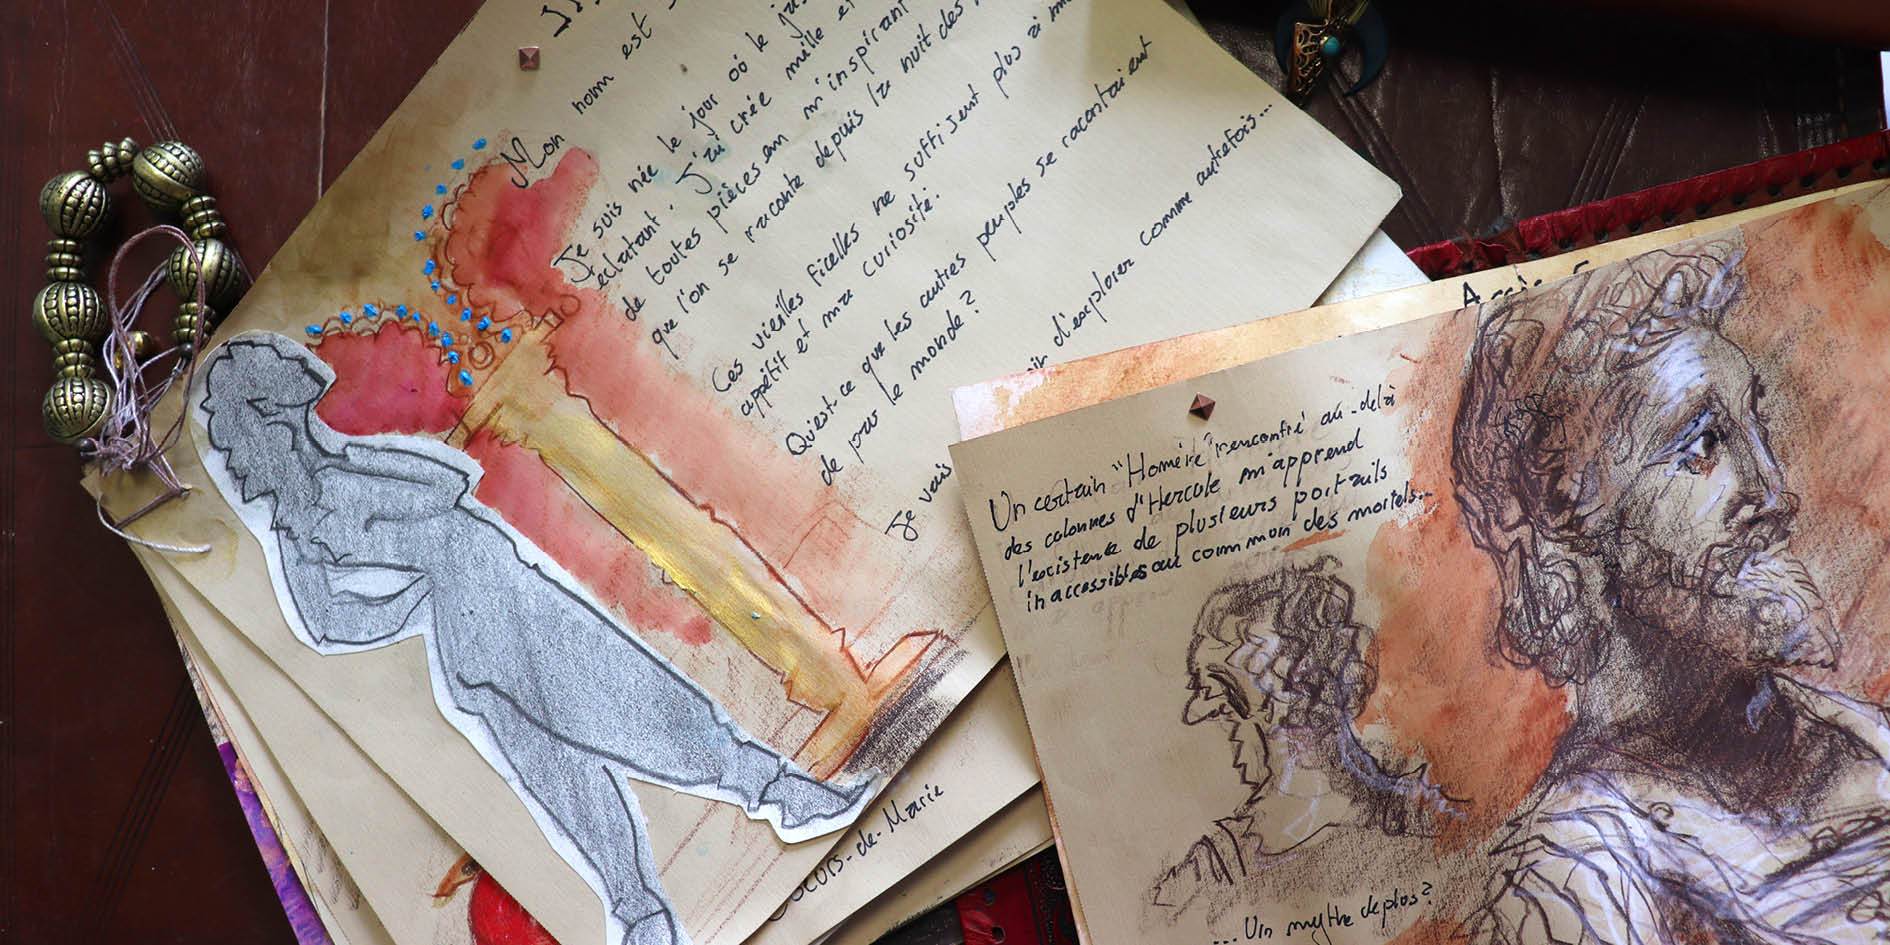 Mon nom est
Je suis née le jour où le
éclatant. J'ai créé mille et
de toutes pièces en m'inspirant
que l'on se raconte depuis la nuit des
Ces vieilles ficelles ne suffisent plus à mon
appétit et ma curiosité.
Qu'est-ce que les autres peuples se racontaient
de par le monde ?
Je vais d'explorer comme autrefois...
Secours-de-Marie
Un certain "Homère" rencontré au-delà
des colonnes d'Hercule m'apprend
l'existence de plusieurs portraits
inaccessibles au commoin des mortels...
...Un mythe de plus ?